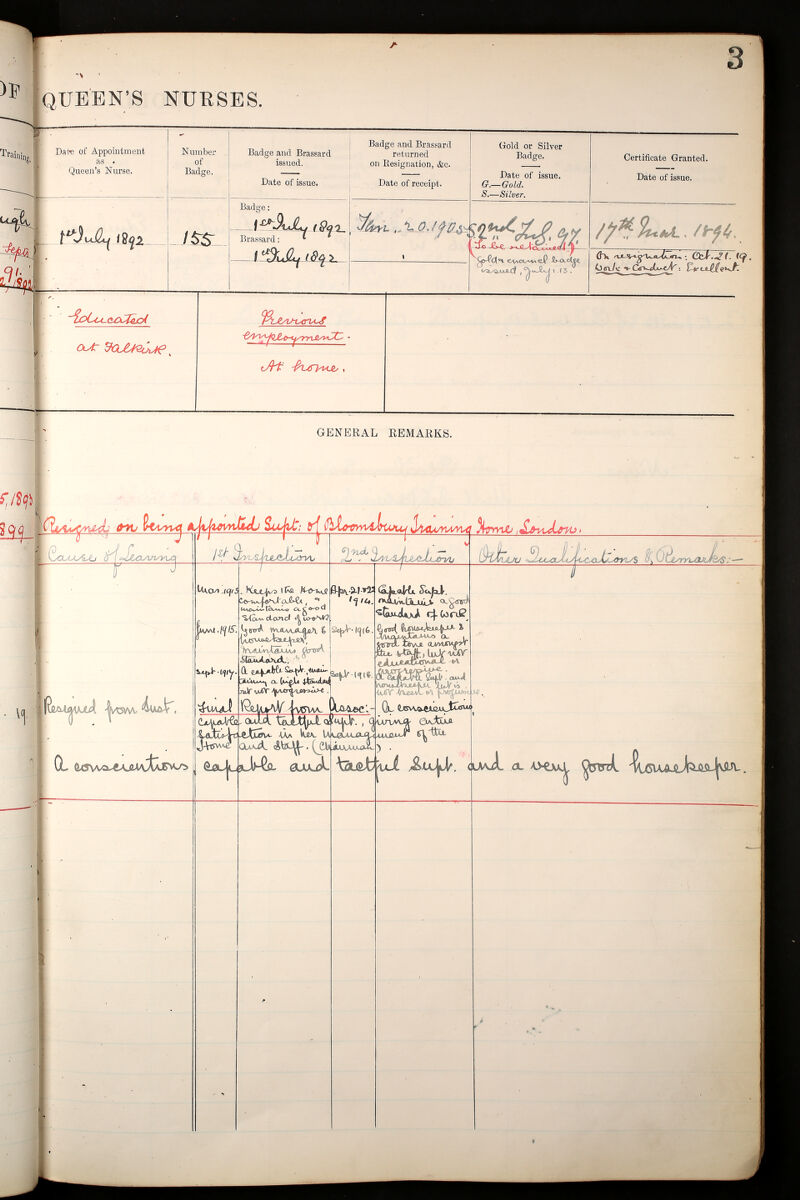 3
QUEEN'S NURSES.
Training.
Date of Appointment
as
Queen's Nurse.
Number
of
Badge.
Badge and Brassard
issued.
Date of issue.
Badge and Brassard
returned
on Resignation, &c.
Date of receipt.
Gold or Silver
Badge.
Date of issue.
G.—Gold.
S.—Silver.
Certificate Granted.
Date of issue.
1st July 1892
155
Badge:
1st July 1892
Brassard:
1st July 1892
Jan. 20. 1905
2nd 97
(To be retained)
Gold enamel badge
issued, July 1. 13.
17th Mar. 1894.
On resignation: Oct. 21. 19.
Work & Conduct: Excellent.
Educated
at Falkirk.
Previous
employment.
At home.
GENERAL REMARKS.
Resigned on being appointed Supt: of Bloomsbury Training Home, London.
Cause of Leaving
1st Inspection
2nd Inspection
Other Qualifications & Remarks:—
Mar. 1915. Keeps the Home
comfortable,
maintains a good
standard of work.
June. 1915. Good manager &
housekeeper,
maintains good
standard.
Sept. 1917. A capable Supt.,
a high standard
but not progressive.
Apr. 21.&22
1914.
Capable Supt.
maintains a good
standard of work.
Sept. 1916. Good housekeeper &
maintains a
good tone amongst
the staff, but not
educational or
progressive.
Sept. 1916. A capable Supt. and
housekeeper but is
not or progressive.
Resigned from Inst.
Final Report from Assoc:- A conscientious
capable and tactful Supt., giving entire
satisfaction in her management of the
Home and Staff. (Chairman).
A conscientious, capable and tactful Supt. and a very good housekeeper.